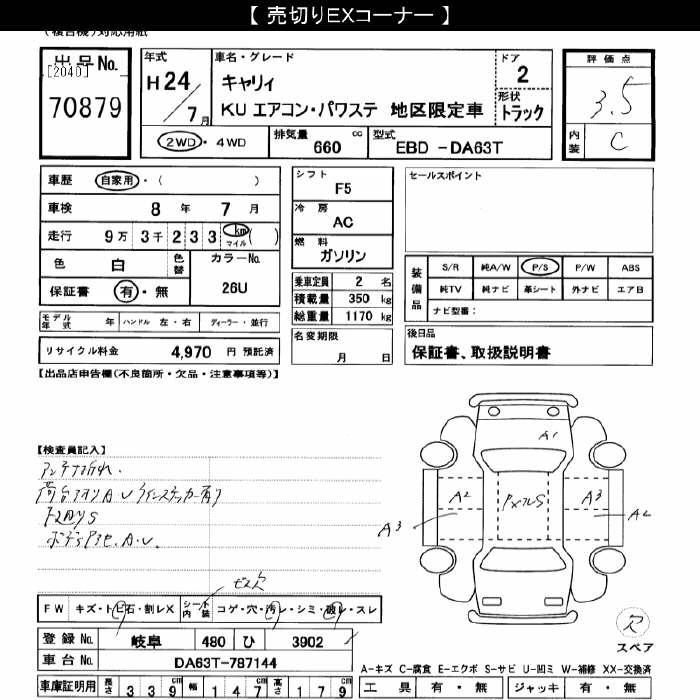 【 売切りEXコーナー 】
(複合機)対応用紙
出品No.
[2040]
70879
年式
H24/7月
車名・グレード
キャリィ
KU エアコン・パワステ 地区限定車
ドア
2
形状
トラック
2WD・4WD
排気量 660 cc
型式 EBD -DA63T
評価点
3.5
内装
C
車歴 自家用・( )
車検 8年 7月
走行 9万 3千 2 3 3 km マイル ( )
色 白 色替
カラーNo.
26U
保証書 有・無
モデル年式 年 ハンドル 左・右 ディーラー・並行
リサイクル料金 4,970 円 預託済
シフト
F5
冷房
AC
燃料
ガソリン
乗車定員 2 名
積載量 350 kg
総重量 1170 kg
名変期限
月 日
セールスポイント
装備品
S/R 純A/W P/S P/W ABS
純TV 純ナビ 革シート 外ナビ エアB
ナビ型番:
後日品
保証書、取扱説明書
【出品店申告欄(不良箇所・欠品・注意事項等)】
【検査員記入】
アンテナ折れ.
ボデー凹色.A.U.
A1
A2
A3
A3
A2
FW キズ・トビ石・割レX シート内装 コゲ・穴・汚レ・シミ・破レ・スレ
登録No. 岐阜 480 ひ 3902
車台No. DA63T-787144
車庫証明用 長さ 3 3 9 cm 幅 1 4 7 cm 高さ 1 7 9 cm
欠
スペア
A-キズ C-腐食 E-エクボ S-サビ U-凹ミ W-補修 XX-交換済
工具 有・無 ジャッキ 有・無